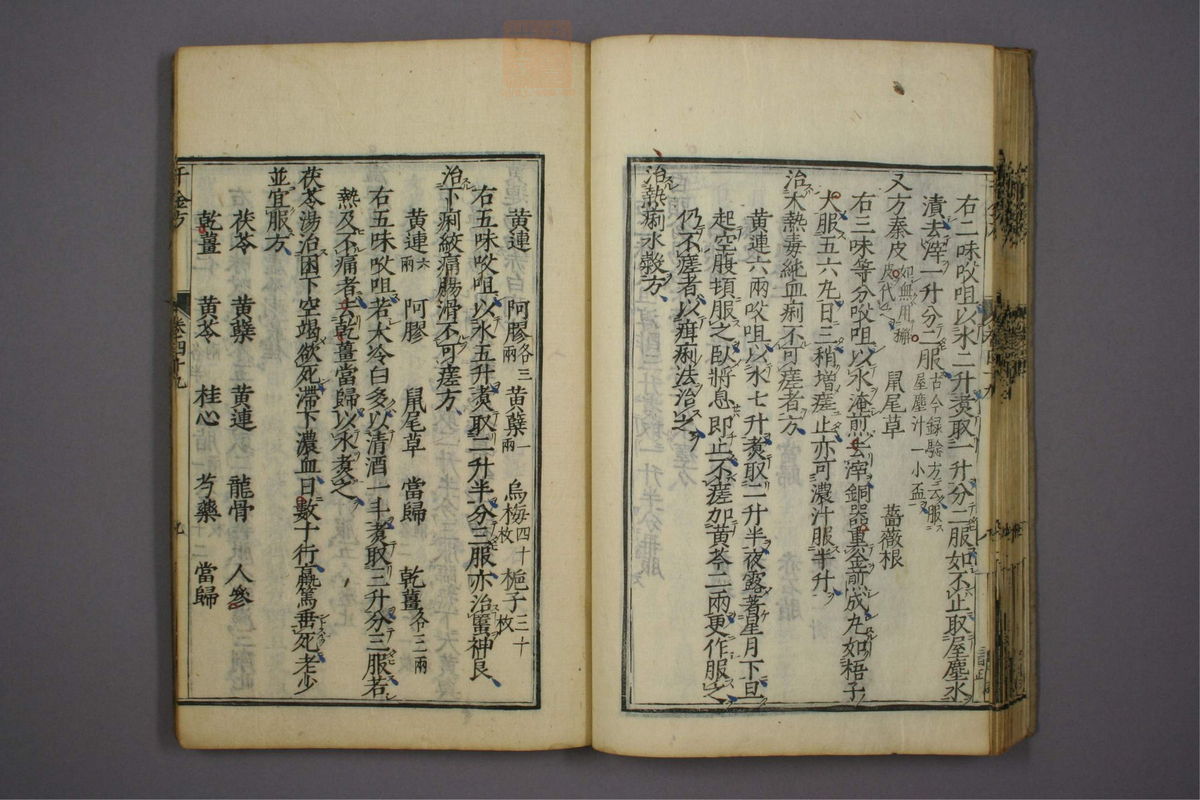 右二味㕮咀以水二升煑取一升分二服如不止取屋塵水
漬去滓一升分二服古今録驗方云服屋塵汁一小盃
又方秦皮如無用獺皮代之 鼠尾草 薔薇根
右三味等分㕮咀以水淹煎去滓銅器重釜煎成丸如梧子
大服五六丸日三稍增瘥止亦可濃汁服半升
治大熱毒純血痢不可瘥者方
黄連六兩㕮咀以水七升煑取二升半夜露著星月下旦
起空腹頓服之臥將息即止不瘥加黄芩二兩更作服之
仍不瘥者以疳痢法治之
治熱痢水穀方
黄連 阿膠各三兩 黄蘗一兩 烏梅四十枚 梔子三十枚
右五味㕮咀以水五升煑取二升半分三服亦治䘌神良
治下痢絞痛腸滑不可瘥方
黄連六兩 阿膠 鼠尾草 當歸 乾薑各三兩
右五味㕮咀若大冷白多以清酒一斗煑取三升分三服若
熱及不痛者去乾薑當歸以水煑之
茯苓湯治因下空竭欲死滯下濃血日數十行羸篤垂死老少
並宜服方
茯苓 黄蘗 黄連 龍骨 人參
乾薑 黄芩 桂心 芍藥 當歸
千金方
卷四十九
九